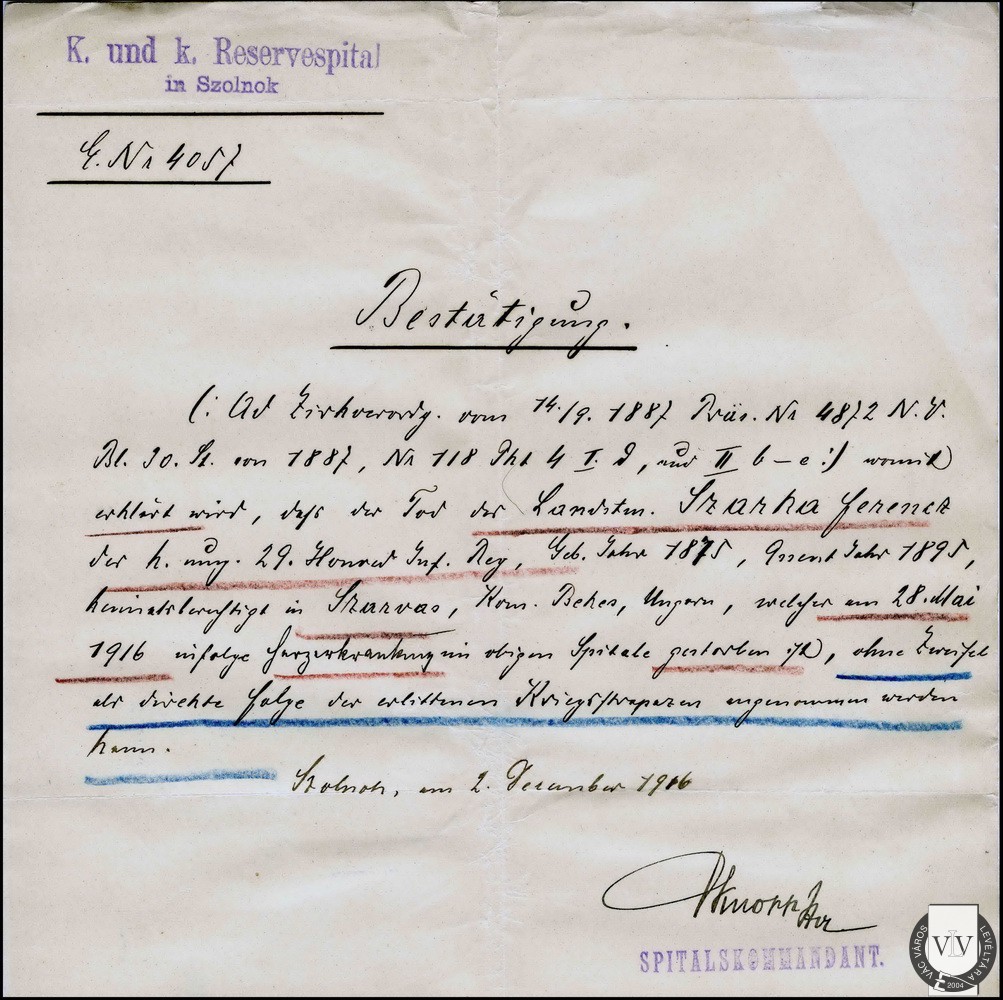 K. und k. Reservespital
in Szolnok
G. Nr 4057
Bestätigung.
(: Ad Zirkverordg. vom 14./9. 1887 Präs. Nr 4872 N. V.
Bl. 30. St. von 1887, Nr 118 Pkt 4 I. D, und II b – e :) womit
erklärt wird, dass der Tod des Landstm. Szarka Ferencz
der k. ung. 29. Honved Inf. Reg, Geb. Jahr 1875, Assent Jahr 1895,
heimatsberechtigt in Szarvas, Kom. Bekes, Ungarn, welcher am 28. Mai
1916 infolge Herzerkrankung im obigen Spitale gestorben ist, ohne Zweifel
als direkte Folge der erlittenen Kriegsstrapazen angenommen werden
kann.
Szolnok, am 2. Dezember 1916
SPITALSKOMMANDANT.
VÁC VÁROS LEVÉLTÁRA
VLV
2004